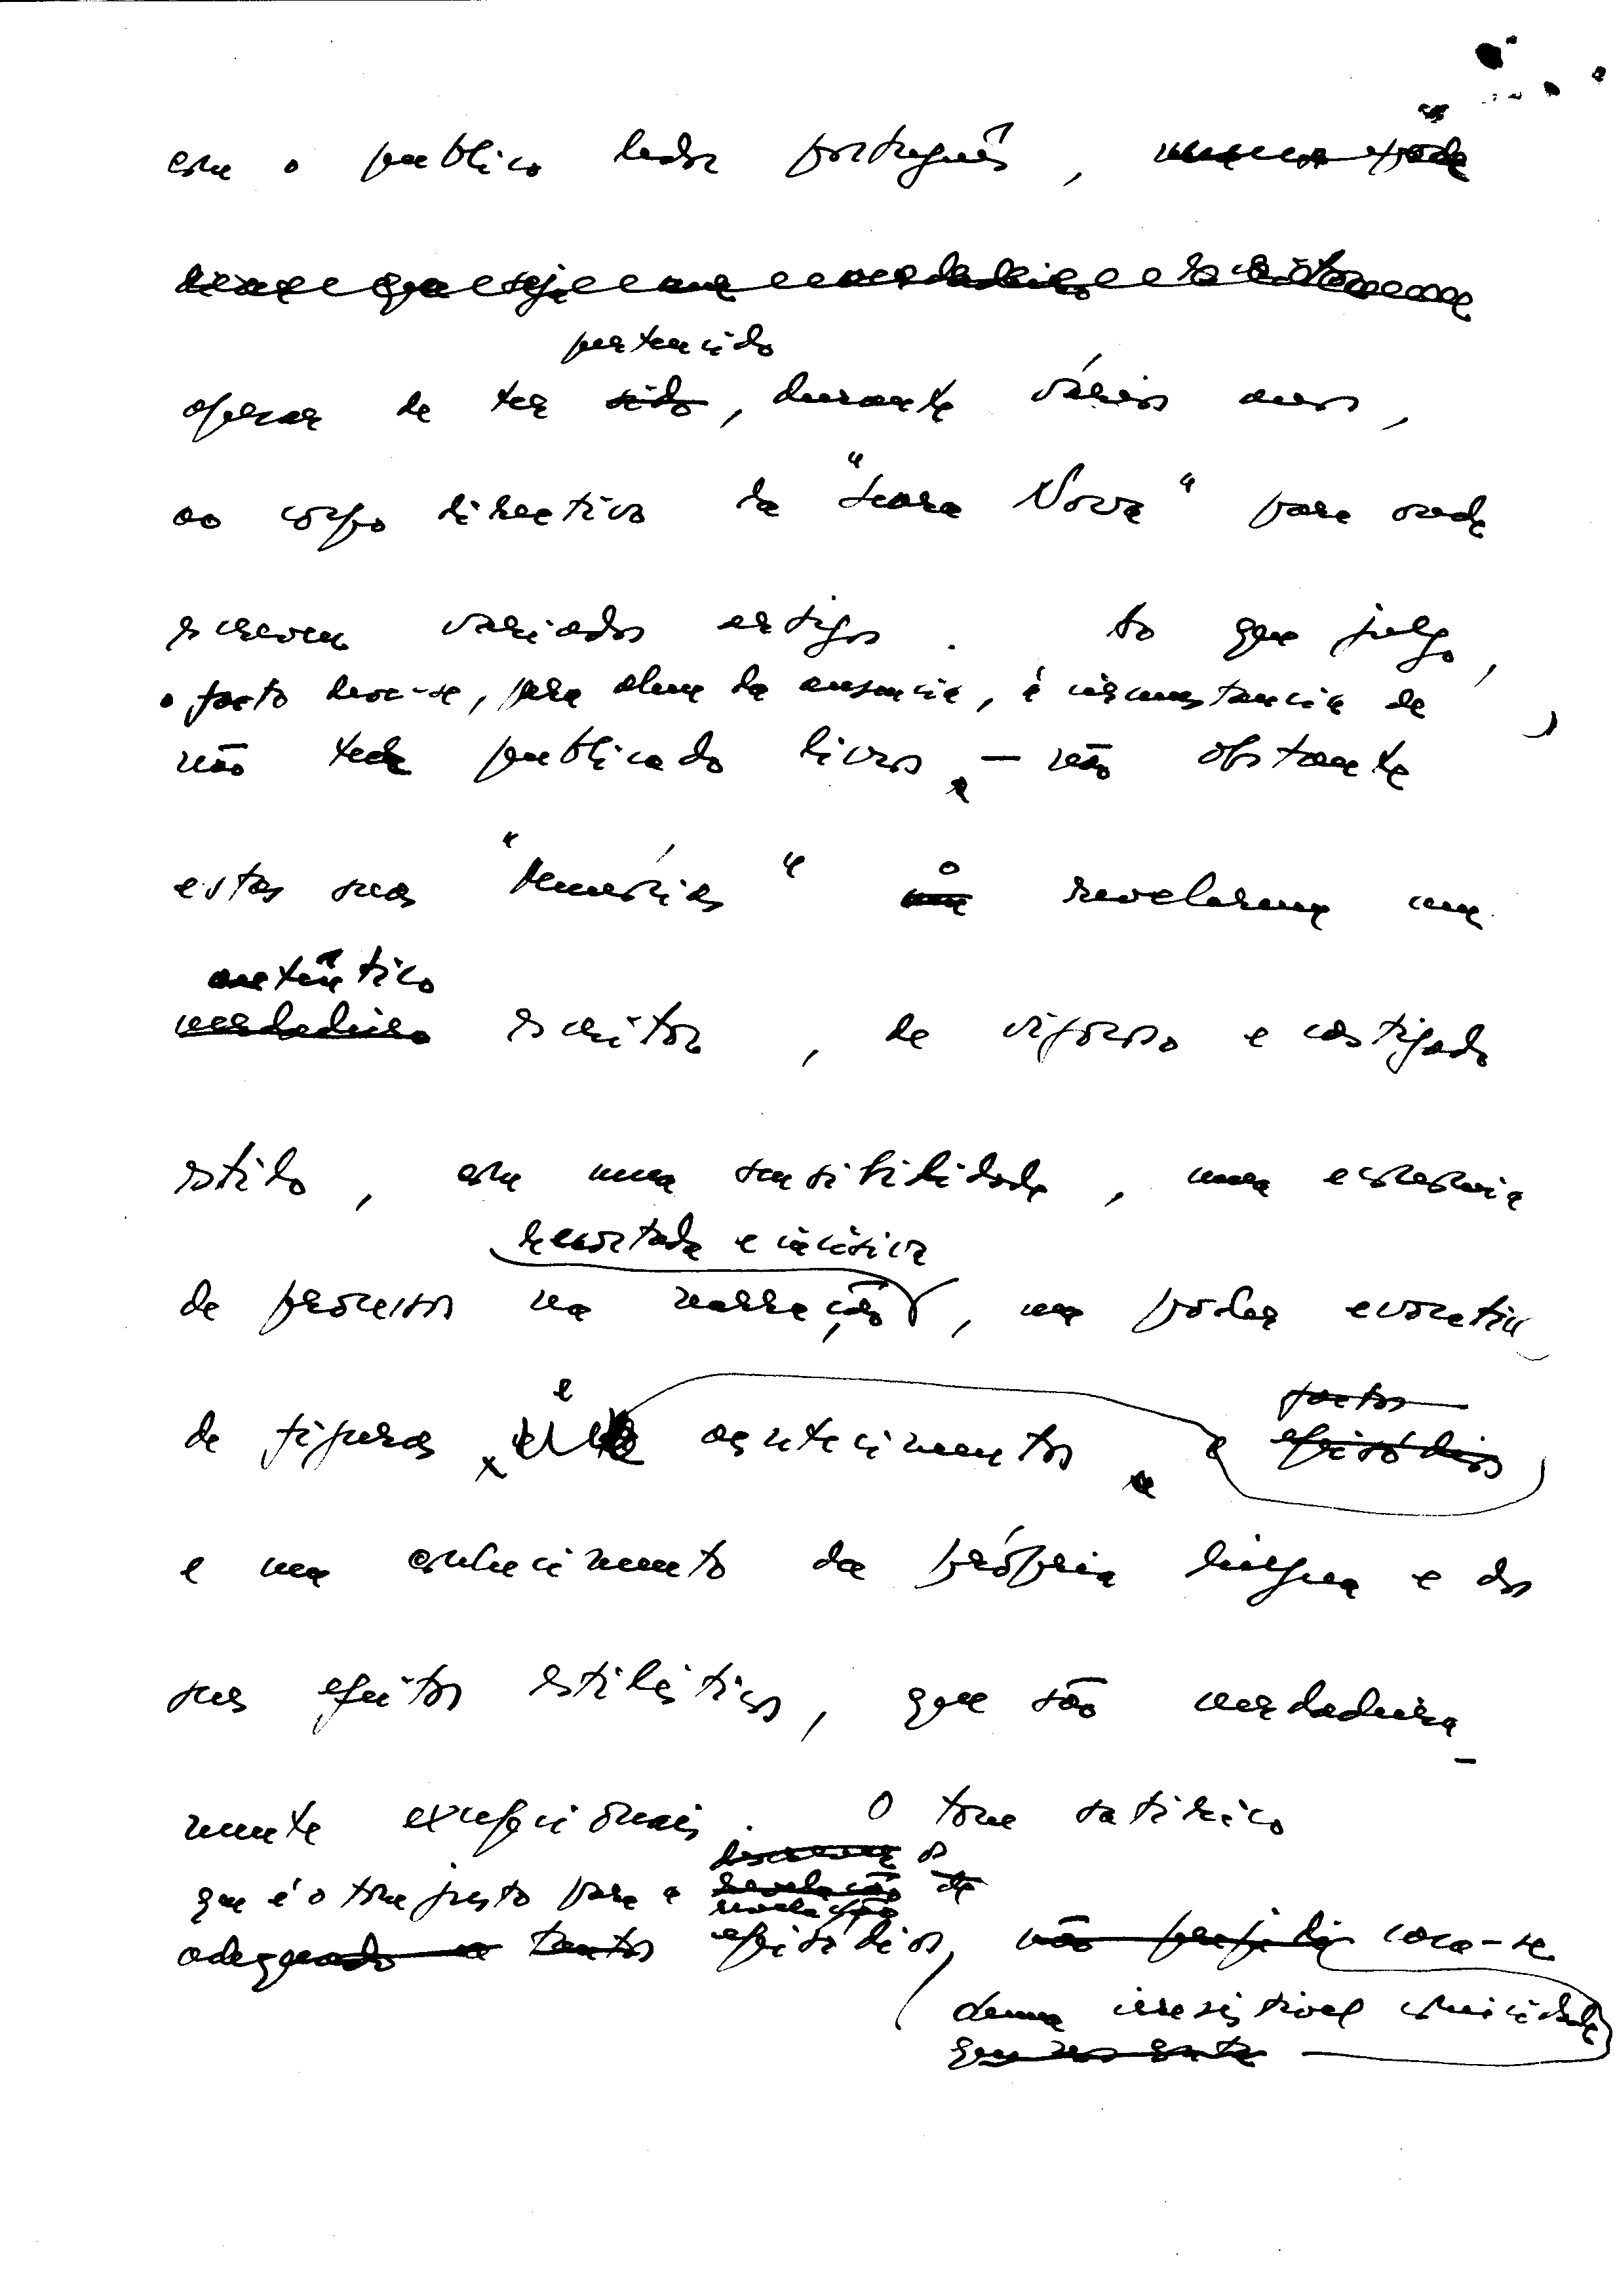 com o publico ledor português,
pertencido
apesar de ter sido, durante vários anos,
ao corpo directivo da "Seara Nova" para onde
escreveu variados artigos. Ao que julgo,
o facto deve-se, para alem da ausencia, á circunstancia de
não ter publicado livros, - não obstante
estas suas "Memórias" o revelarem um
autêntico
verdadeiro escritor, de vigoroso e castigado
estilo, com uma sensibilidade, uma economia
recortada e incisiva
de processos na narração, um poder evocativo
factos
de figuras, e acontecimentos e episódios
e um conhecimento da própria lingua e dos
seus efeitos estilisticos, que são verdadeira-
mente excepcionais. O tom satirico
os
que é o tom justo para a revelação de
revelação
adequado a tantos episódios, não perfidia coca-se
duma irresistivel comicidade